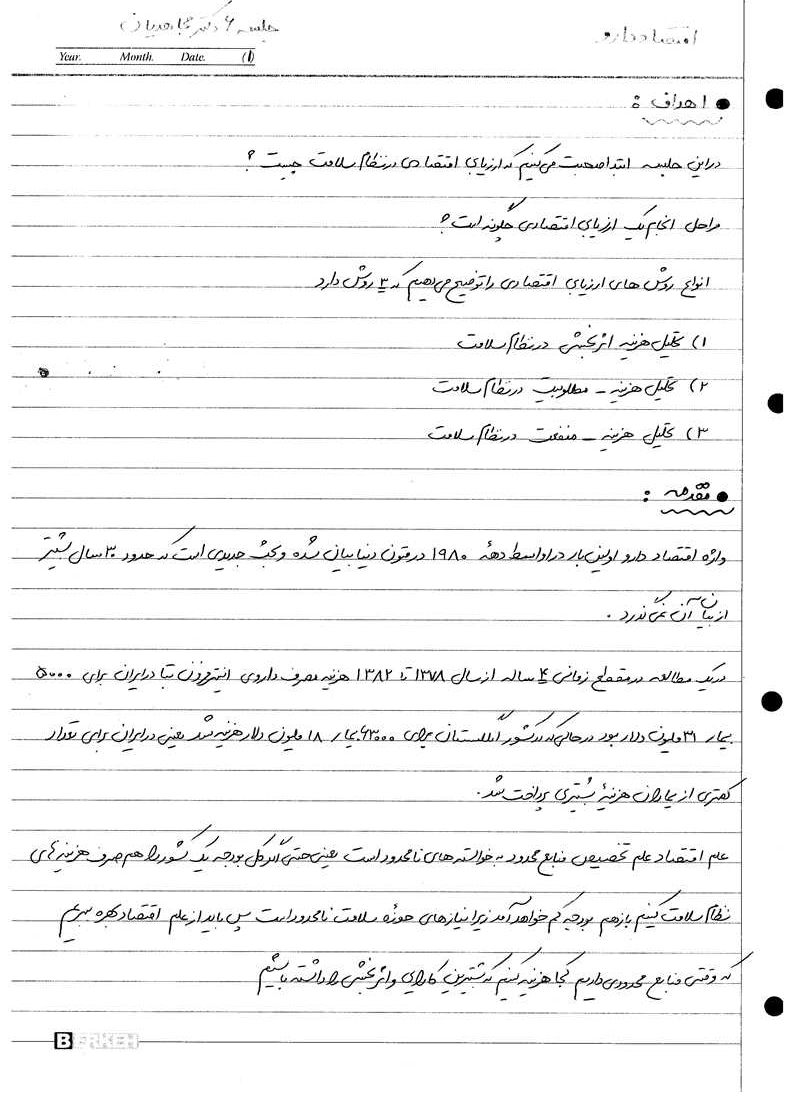 اقتصاد دارو
جلسه ۶ دکتر مجاهدیان
Year. Month. Date. (1)
● اهداف :
در این جلسه ابتدا صحبت می‌کنیم که ارزیابی اقتصادی در نظام سلامت چیست ؟
مراحل انجام یک ارزیابی اقتصادی چگونه است ؟
انواع روش های ارزیابی اقتصادی را توضیح می‌دهیم که ۳ روش دارد
۱) تحلیل هزینه اثربخشی در نظام سلامت
۲) تحلیل هزینه – مطلوبیت در نظام سلامت
۳) تحلیل هزینه – منفعت در نظام سلامت
● مقدمه :
واژه اقتصاد دارو اولین بار در اواسط دههٔ ۱۹۸۰ در متون دنیا بیان شده و بحث جدیدی است که حدود ۳۰ سال بیشتر
از بیان آن نمی‌گذرد .
در یک مطالعه در مقطع زمانی ۴ ساله از سال ۱۳۷۸ تا ۱۳۸۲ هزینه مصرف داروی اینترفرون بتا در ایران برای ۵۰۰۰
بیمار ۳۱ ملیون دلار بود در حالی که در کشور انگلستان برای ۶۳۰۰۰ بیمار ۱۸ ملیون دلار هزینه شد یعنی در ایران برای تعداد
کمتری از بیماران هزینهٔ بیشتری پرداخت شد.
علم اقتصاد علم تخصیص منابع محدود به خواسته های نامحدود است یعنی حتی اگر کل بودجه یک کشور را هم صرف هزینه های
نظام سلامت کنیم باز هم بودجه کم خواهد آمد زیرا نیازهای حوزه سلامت نامحدود است پس باید از علم اقتصاد بهره ببریم
که وقتی منابع محدودی داریم کجا هزینه کنیم که بیشترین کارایی و اثربخشی را داشته باشیم
BERKEH